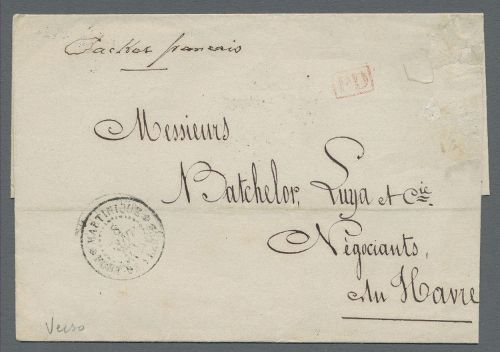 Packet français
PD
Messieurs
Batchelor, Luya et Cie.
Négociants,
Au Havre
MARTINIQUE
Verso